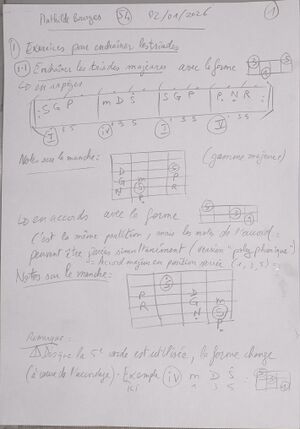 Mathilde Bourges S4 02/01/2026 1
① Exercices pour enchaîner les triades
1.1 Enchaîner les triades majeures avec la forme
↳ en arpèges
: S G P | m D S | S G P | P N R :
1 3 5 1 3 5 1 3 5 1 3 5
I IV I V
Notes sur le manche : (gamme majeure)
D S
G m P
N S R
P
↳ en accords avec la forme
C'est la même partition, mais les mots de l'accord
peuvent être joués simultanément (version "polyphonique")
= Accord majeur en position serrée (1, 3, 5)
Notes sur le manche :
S
P D m
R G S
N P
Remarque :
⚠ Lorsque la 5e corde est utilisée, la forme change
(à cause de l'accordage). Exemple IV m D S
ici 1 3 5